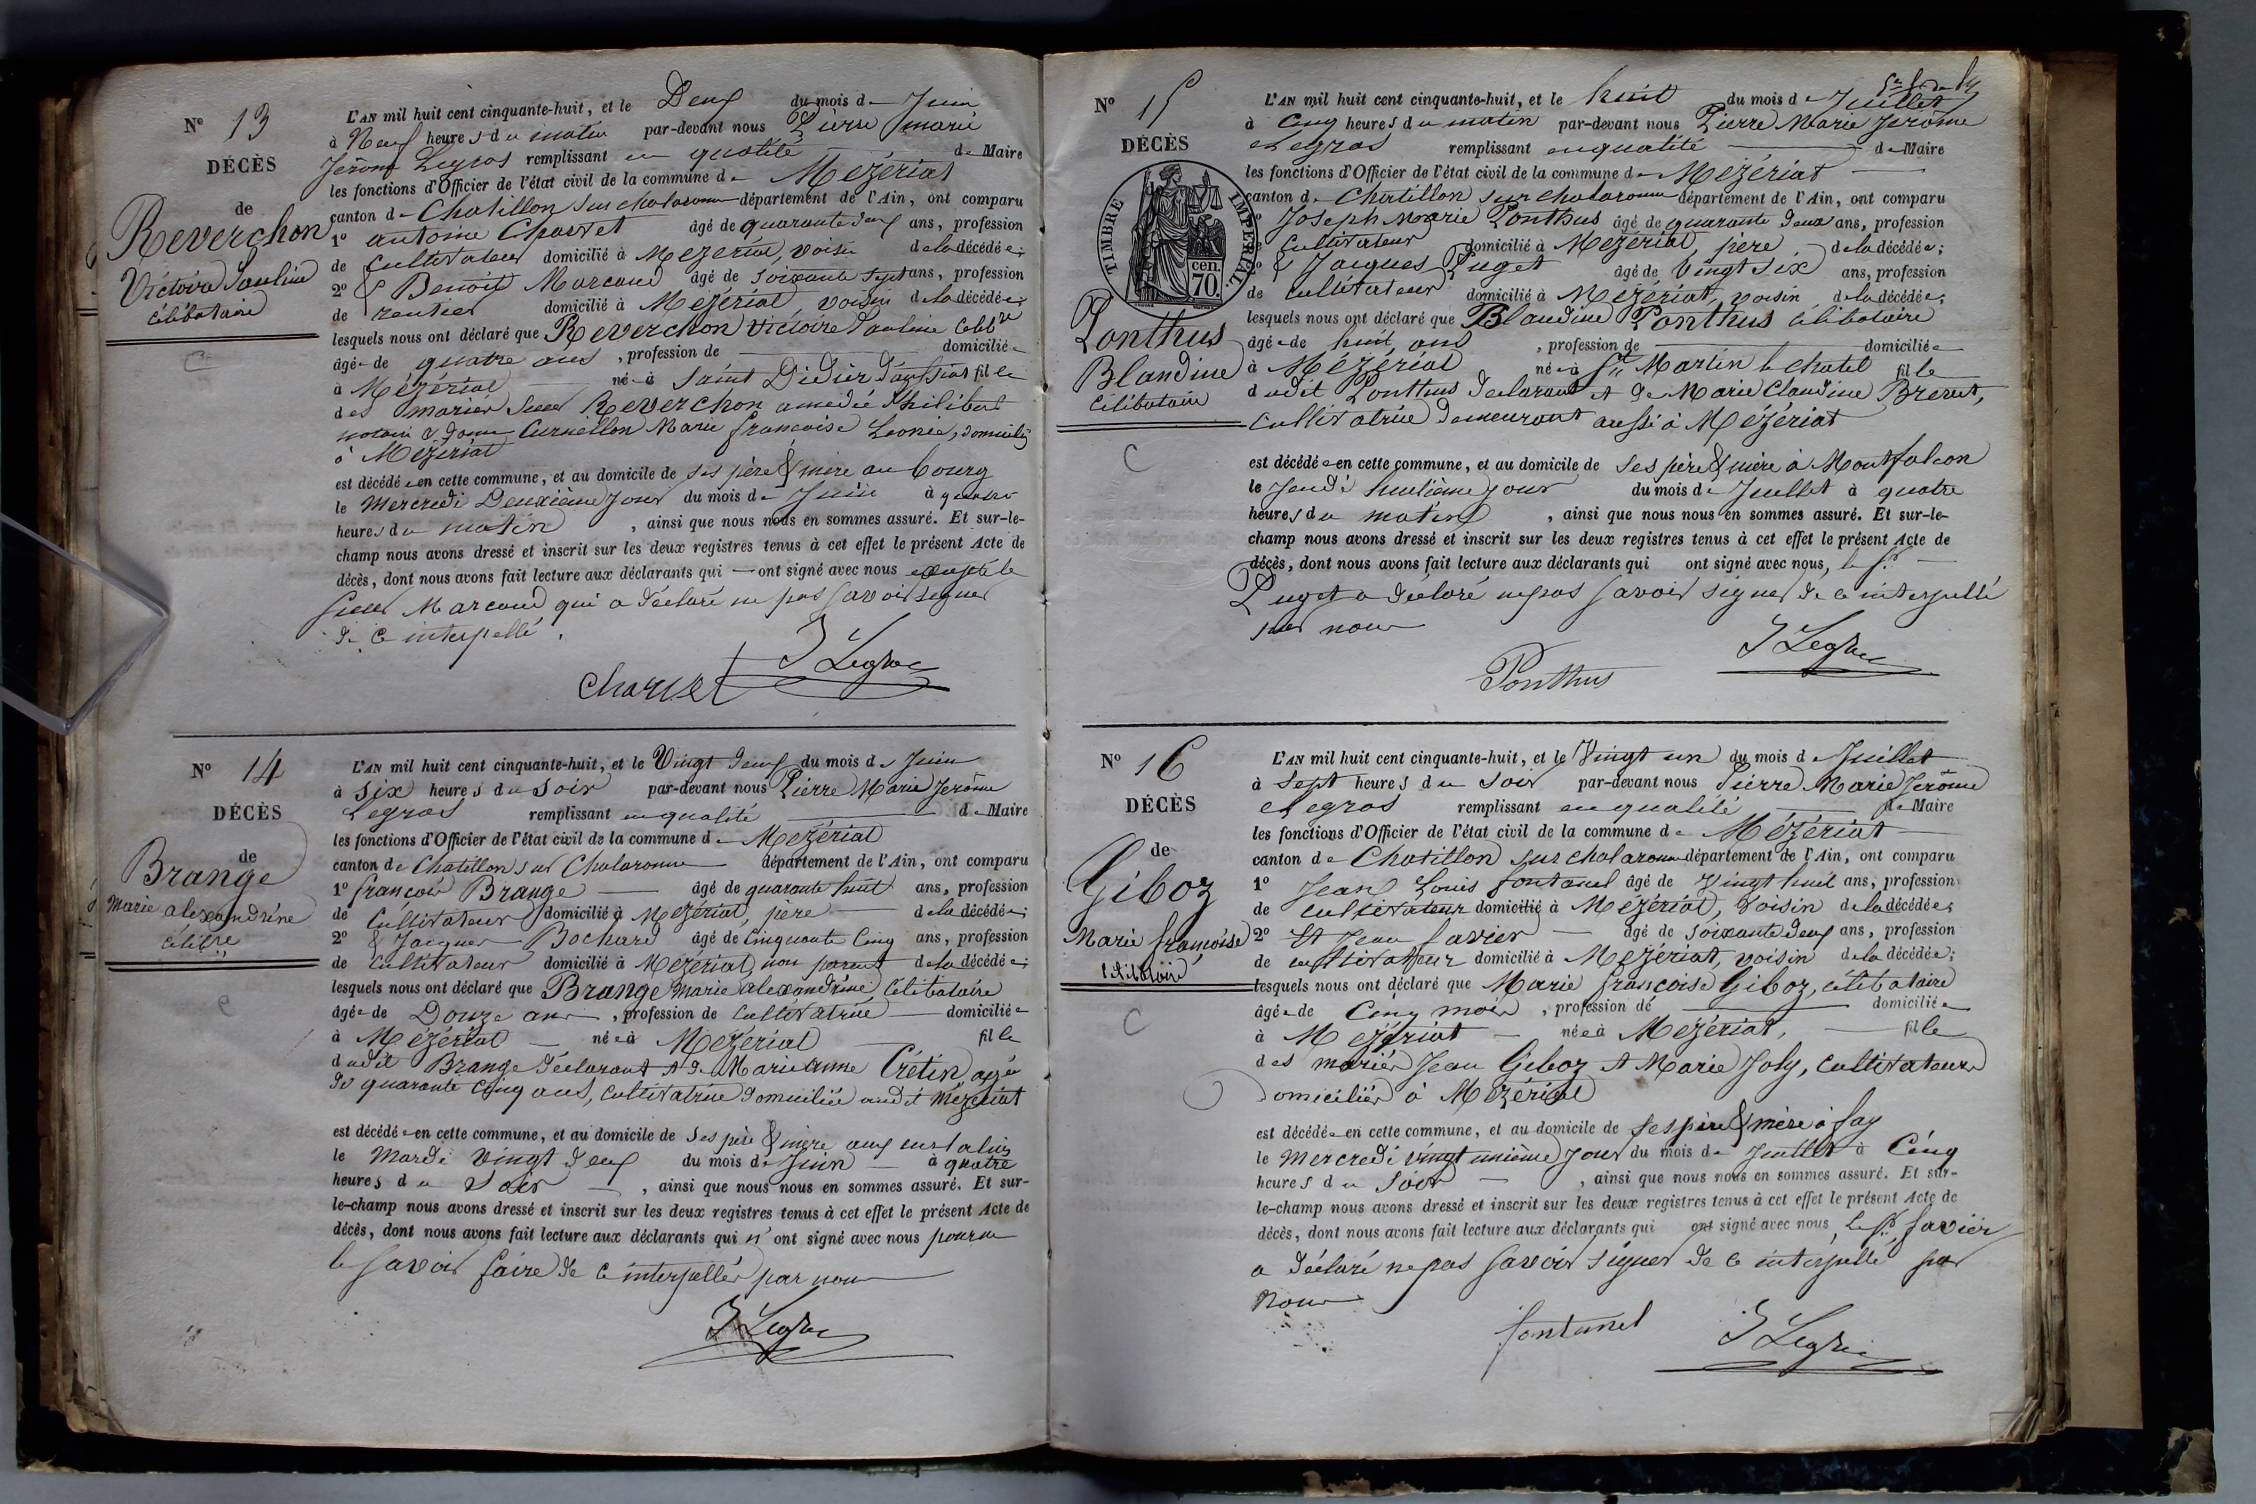 N° 13
DÉCÈS
de
Reverchon
Victoire Pauline
célibataire
L'AN mil huit cent cinquante-huit, et le Deux du mois de Juin
à Neuf heures du matin par-devant nous Pierre Marie
Jérôme Legros remplissant en qualité de Maire
les fonctions d'Officier de l'état civil de la commune de Mézériat
canton de Chatillon sur chalaronne département de l'Ain, ont comparu
1° antoine Charvet âgé de quarante deux ans, profession
de Cultivateur domicilié à Mézériat, voisin de la décédée;
2° & Benoit Marcaud âgé de soixante sept ans, profession
de rentier domicilié à Mézériat, voisin de la décédée;
lesquels nous ont déclaré que Reverchon Victoire Pauline Celibre
âgée de quatre ans, profession de domiciliée
à Mézériat née à Saint Didier d'aussiat fille
des mariés sieur Reverchon amedée Philibert
notaire & dame Curnillon Marie françoise Leonce, domiciliés
à Mézériat
est décédée en cette commune, et au domicile de ses père & mère au bourg
le Mercredi Deuxième jour du mois de Juin à quatre
heures du matin, ainsi que nous nous en sommes assuré. Et sur-le-
champ nous avons dressé et inscrit sur les deux registres tenus à cet effet le présent Acte de
décès, dont nous avons fait lecture aux déclarants qui — ont signé avec nous excepté le
sieur Marcaud qui a déclaré ne pas savoir signer
de ce interpellé.
J Legros
Charvet
N° 14
DÉCÈS
de
Brange
Marie alexandrine
célibre
L'AN mil huit cent cinquante-huit, et le Vingt deux du mois de Juin
à six heures du soir par-devant nous Pierre Marie Jerôme
Legros remplissant en qualité de Maire
les fonctions d'Officier de l'état civil de la commune de Mézériat
canton de Chatillon sur Chalaronne département de l'Ain, ont comparu
1° françois Brange âgé de quarante huit ans, profession
de Cultivateur domicilié à Mézériat, père de la décédée;
2° & Jacques Bochard âgé de Cinquante Cinq ans, profession
de Cultivateur domicilié à Mézériat, non parent de la décédée;
lesquels nous ont déclaré que Brange Marie alexandrine Célibataire
âgée de Douze ans, profession de Cultivatrice domiciliée
à Mézériat née à Mézériat fille
dudit Brange déclarant & de Marie anne Crétin agée
de quarante cinq ans, Cultivatrice domiciliée audit Mézériat
est décédée en cette commune, et au domicile de ses père & mère aux
le Mardi vingt deux du mois de Juin à quatre
heures du soir, ainsi que nous nous en sommes assuré. Et sur-
le-champ nous avons dressé et inscrit sur les deux registres tenus à cet effet le présent Acte de
décès, dont nous avons fait lecture aux déclarants qui n'ont signé avec nous pour ne
le savoir faire de ce interpellés par nous
J Legros
N° 15
DÉCÈS
TIMBRE IMPÉRIAL.
cen. 70.
Ponthus
Blandine
Célibataire
L'AN mil huit cent cinquante-huit, et le huit du mois de Juillet
à Cinq heures du matin par-devant nous Pierre Marie Jerôme
Legros remplissant en qualité de Maire
les fonctions d'Officier de l'état civil de la commune de Mézériat
canton de Chatillon sur chalaronne département de l'Ain, ont comparu
1° Joseph Marie Ponthus âgé de quarante deux ans, profession
de Cultivateur domicilié à Mézériat, père de la décédée;
2° & Jacques Puget âgé de Vingt six ans, profession
de Cultivateur domicilié à Mézériat, voisin de la décédée;
lesquels nous ont déclaré que Blandine Ponthus célibataire
âgée de huit ans, profession de domiciliée
à Mézériat née à St Martin le chatel fille
dudit Ponthus déclarant & de Marie Claudine Brevet,
Cultivatrice demeurant aussi à Mézériat
est décédée en cette commune, et au domicile de ses père & mère à Montfalcon
le Jeudi huitième jour du mois de Juillet à quatre
heures du matin, ainsi que nous nous en sommes assuré. Et sur-le-
champ nous avons dressé et inscrit sur les deux registres tenus à cet effet le présent Acte de
décès, dont nous avons fait lecture aux déclarants qui ont signé avec nous, le Sr
Puget a déclaré ne pas savoir signer de ce interpellé
par nous
J Legros
Ponthus
N° 16
DÉCÈS
de
Giboz
Marie françoise
célibataire
L'AN mil huit cent cinquante-huit, et le Vingt un du mois de Juillet
à Sept heures du soir par-devant nous Pierre Marie Jerôme
Legros remplissant en qualité de Maire
les fonctions d'Officier de l'état civil de la commune de Mézériat
canton de Chatillon sur chalaronne département de l'Ain, ont comparu
1° Jean Louis fontanel âgé de vingt huit ans, profession
de cultivateur domicilié à Mézériat, voisin de la décédée;
2° Et Jean favier âgé de soixante deux ans, profession
de cultivateur domicilié à Mézériat, voisin de la décédée;
lesquels nous ont déclaré que Marie françoise Giboz, célibataire
âgée de Cinq mois, profession de domiciliée
à Mézériat née à Mézériat, fille
des mariés Jean Giboz & Marie Joly, Cultivateurs
domiciliés à Mézériat
est décédée en cette commune, et au domicile de ses père & mère à fay
le Mercredi vingt unième jour du mois de Juillet à Cinq
heures du soir, ainsi que nous nous en sommes assuré. Et sur-
le-champ nous avons dressé et inscrit sur les deux registres tenus à cet effet le présent Acte de
décès, dont nous avons fait lecture aux déclarants qui ont signé avec nous, le Sr favier
a déclaré ne pas savoir signer de ce interpellé par
nous
fontanel
J Legros